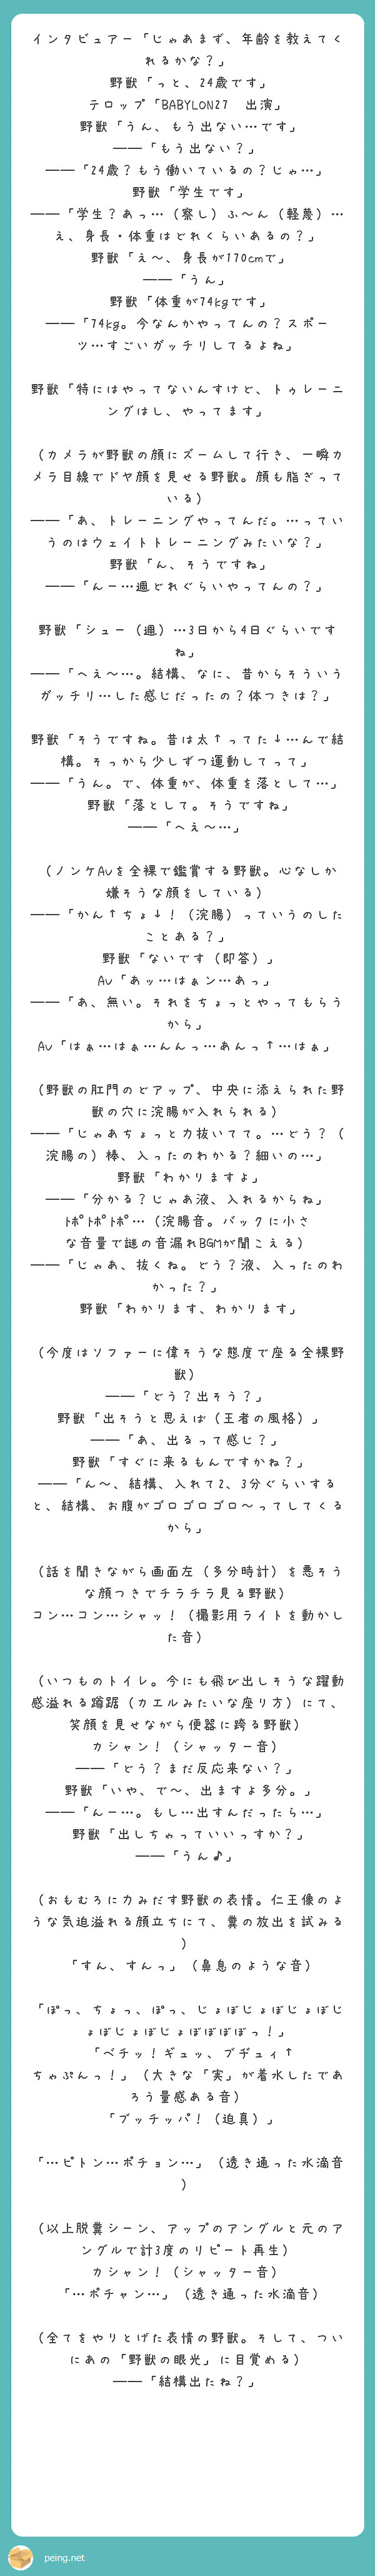 インタビュアー「じゃあまず、年齢を教えてく
れるかな？」
野獣「っと、24歳です」
テロップ「BABYLON27　出演」
野獣「うん、もう出ない…です」
――「もう出ない？」
――「24歳？もう働いているの？じゃ…」
野獣「学生です」
――「学生？あっ…（察し）ふ～ん（軽蔑）…
え、身長・体重はどれくらいあるの？」
野獣「え～、身長が170cmで」
――「うん」
野獣「体重が74kgです」
――「74kg。今なんかやってんの？スポー
ツ…すごいガッチリしてるよね」
野獣「特にはやってないんすけど、トゥレーニ
ングはし、やってます」
（カメラが野獣の顔にズームして行き、一瞬カ
メラ目線でドヤ顔を見せる野獣。顔も脂ぎって
いる）
――「あ、トレーニングやってんだ。…ってい
うのはウェイトトレーニングみたいな？」
野獣「ん、そうですね」
――「んー…週どれぐらいやってんの？」
野獣「シュー（週）…3日から4日ぐらいです
ね」
――「へえ～…。結構、なに、昔からそういう
ガッチリ…した感じだったの？体つきは？」
野獣「そうですね。昔は太↑ってた↓…んで結
構。そっから少しずつ運動してって」
――「うん。で、体重が、体重を落として…」
野獣「落として。そうですね」
――「へえ～…」
（ノンケAvを全裸で鑑賞する野獣。心なしか
嫌そうな顔をしている）
――「かん↑ちょ↓！（浣腸）っていうのした
ことある？」
野獣「ないです（即答）」
Av「あッ…はぁン…あっ」
――「あ、無い。それをちょっとやってもらう
から」
Av「はぁ…はぁ…んんっ…あんっ↑…はぁ」
（野獣の肛門のどアップ、中央に添えられた野
獣の穴に浣腸が入れられる）
――「じゃあちょっと力抜いてて。…どう？（
浣腸の）棒、入ったのわかる？細いの…」
野獣「わかりますよ」
――「分かる？じゃあ液、入れるからね」
ﾄﾎﾟﾄﾎﾟﾄﾎﾟ…（浣腸音。バックに小さ
な音量で謎の音漏れBGMが聞こえる）
――「じゃあ、抜くね。どう？液、入ったのわ
かった？」
野獣「わかります、わかります」
（今度はソファーに偉そうな態度で座る全裸野
獣）
――「どう？出そう？」
野獣「出そうと思えば（王者の風格）」
――「あ、出るって感じ？」
野獣「すぐに来るもんですかね？」
――「ん～、結構、入れて2、3分ぐらいする
と、結構、お腹がゴロゴロゴロ～ってしてくる
から」
（話を聞きながら画面左（多分時計）を悪そう
な顔つきでチラチラ見る野獣）
コン…コン…シャッ！（撮影用ライトを動かし
た音）
（いつものトイレ。今にも飛び出しそうな躍動
感溢れる蹲踞（カエルみたいな座り方）にて、
笑顔を見せながら便器に跨る野獣）
カシャン！（シャッター音）
――「どう？まだ反応来ない？」
野獣「いや、で～、出ますよ多分。」
――「んー…。もし…出すんだったら…」
野獣「出しちゃっていいっすか？」
――「うん♪」
（おもむろに力みだす野獣の表情。仁王像のよ
うな気迫溢れる顔立ちにて、糞の放出を試みる
）
「すん、すんっ」（鼻息のような音）
「ぽっ、ちょっ、ぽっ、じょぼじょぼじょぼじ
ょぼじょぼじょぼぼぼぼっ！」
「ベチッ！ギュッ、ブヂュィ↑
ちゃぷんっ！」（大きな「実」が着水したであ
ろう量感ある音）
「ブッチッパ！（迫真）」
「…ピトン…ポチョン…」（透き通った水滴音
）
（以上脱糞シーン、アップのアングルと元のア
ングルで計3度のリピート再生）
カシャン！（シャッター音）
「…ポチャン…」（透き通った水滴音）
（全てをやりとげた表情の野獣。そして、つい
にあの「野獣の眼光」に目覚める）
――「結構出たね？」
peing.net